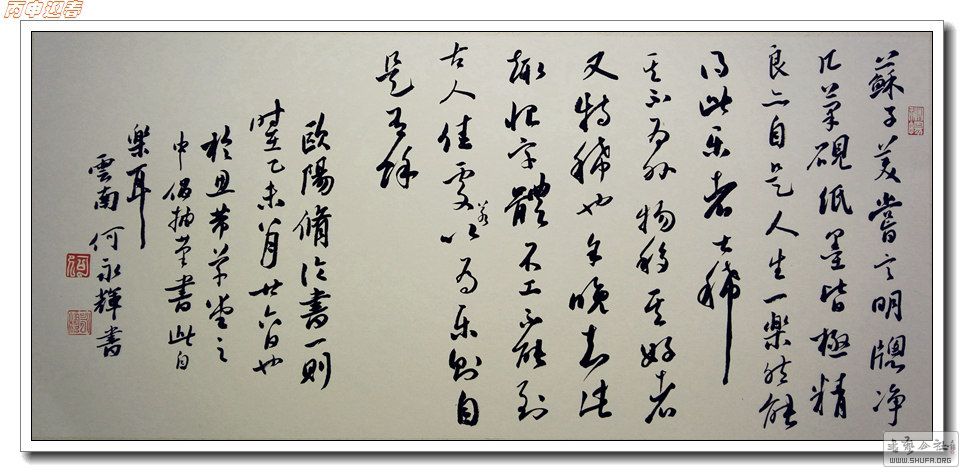 丙申迎春
蘇子美嘗言明牕净
几筆硯紙墨皆極精
良亦自是人生一樂然能
得此樂者甚稀
其不為外物移其好者
又特稀也余晚知此
趣恨字體不工不能到
古人佳處若以為樂則自
是有餘
歐陽脩論書一則
時乙未八月廿六日也
於草堂之
中偶書此自
樂耳
雲南何永輝書
WWW.SHUFA.ORG